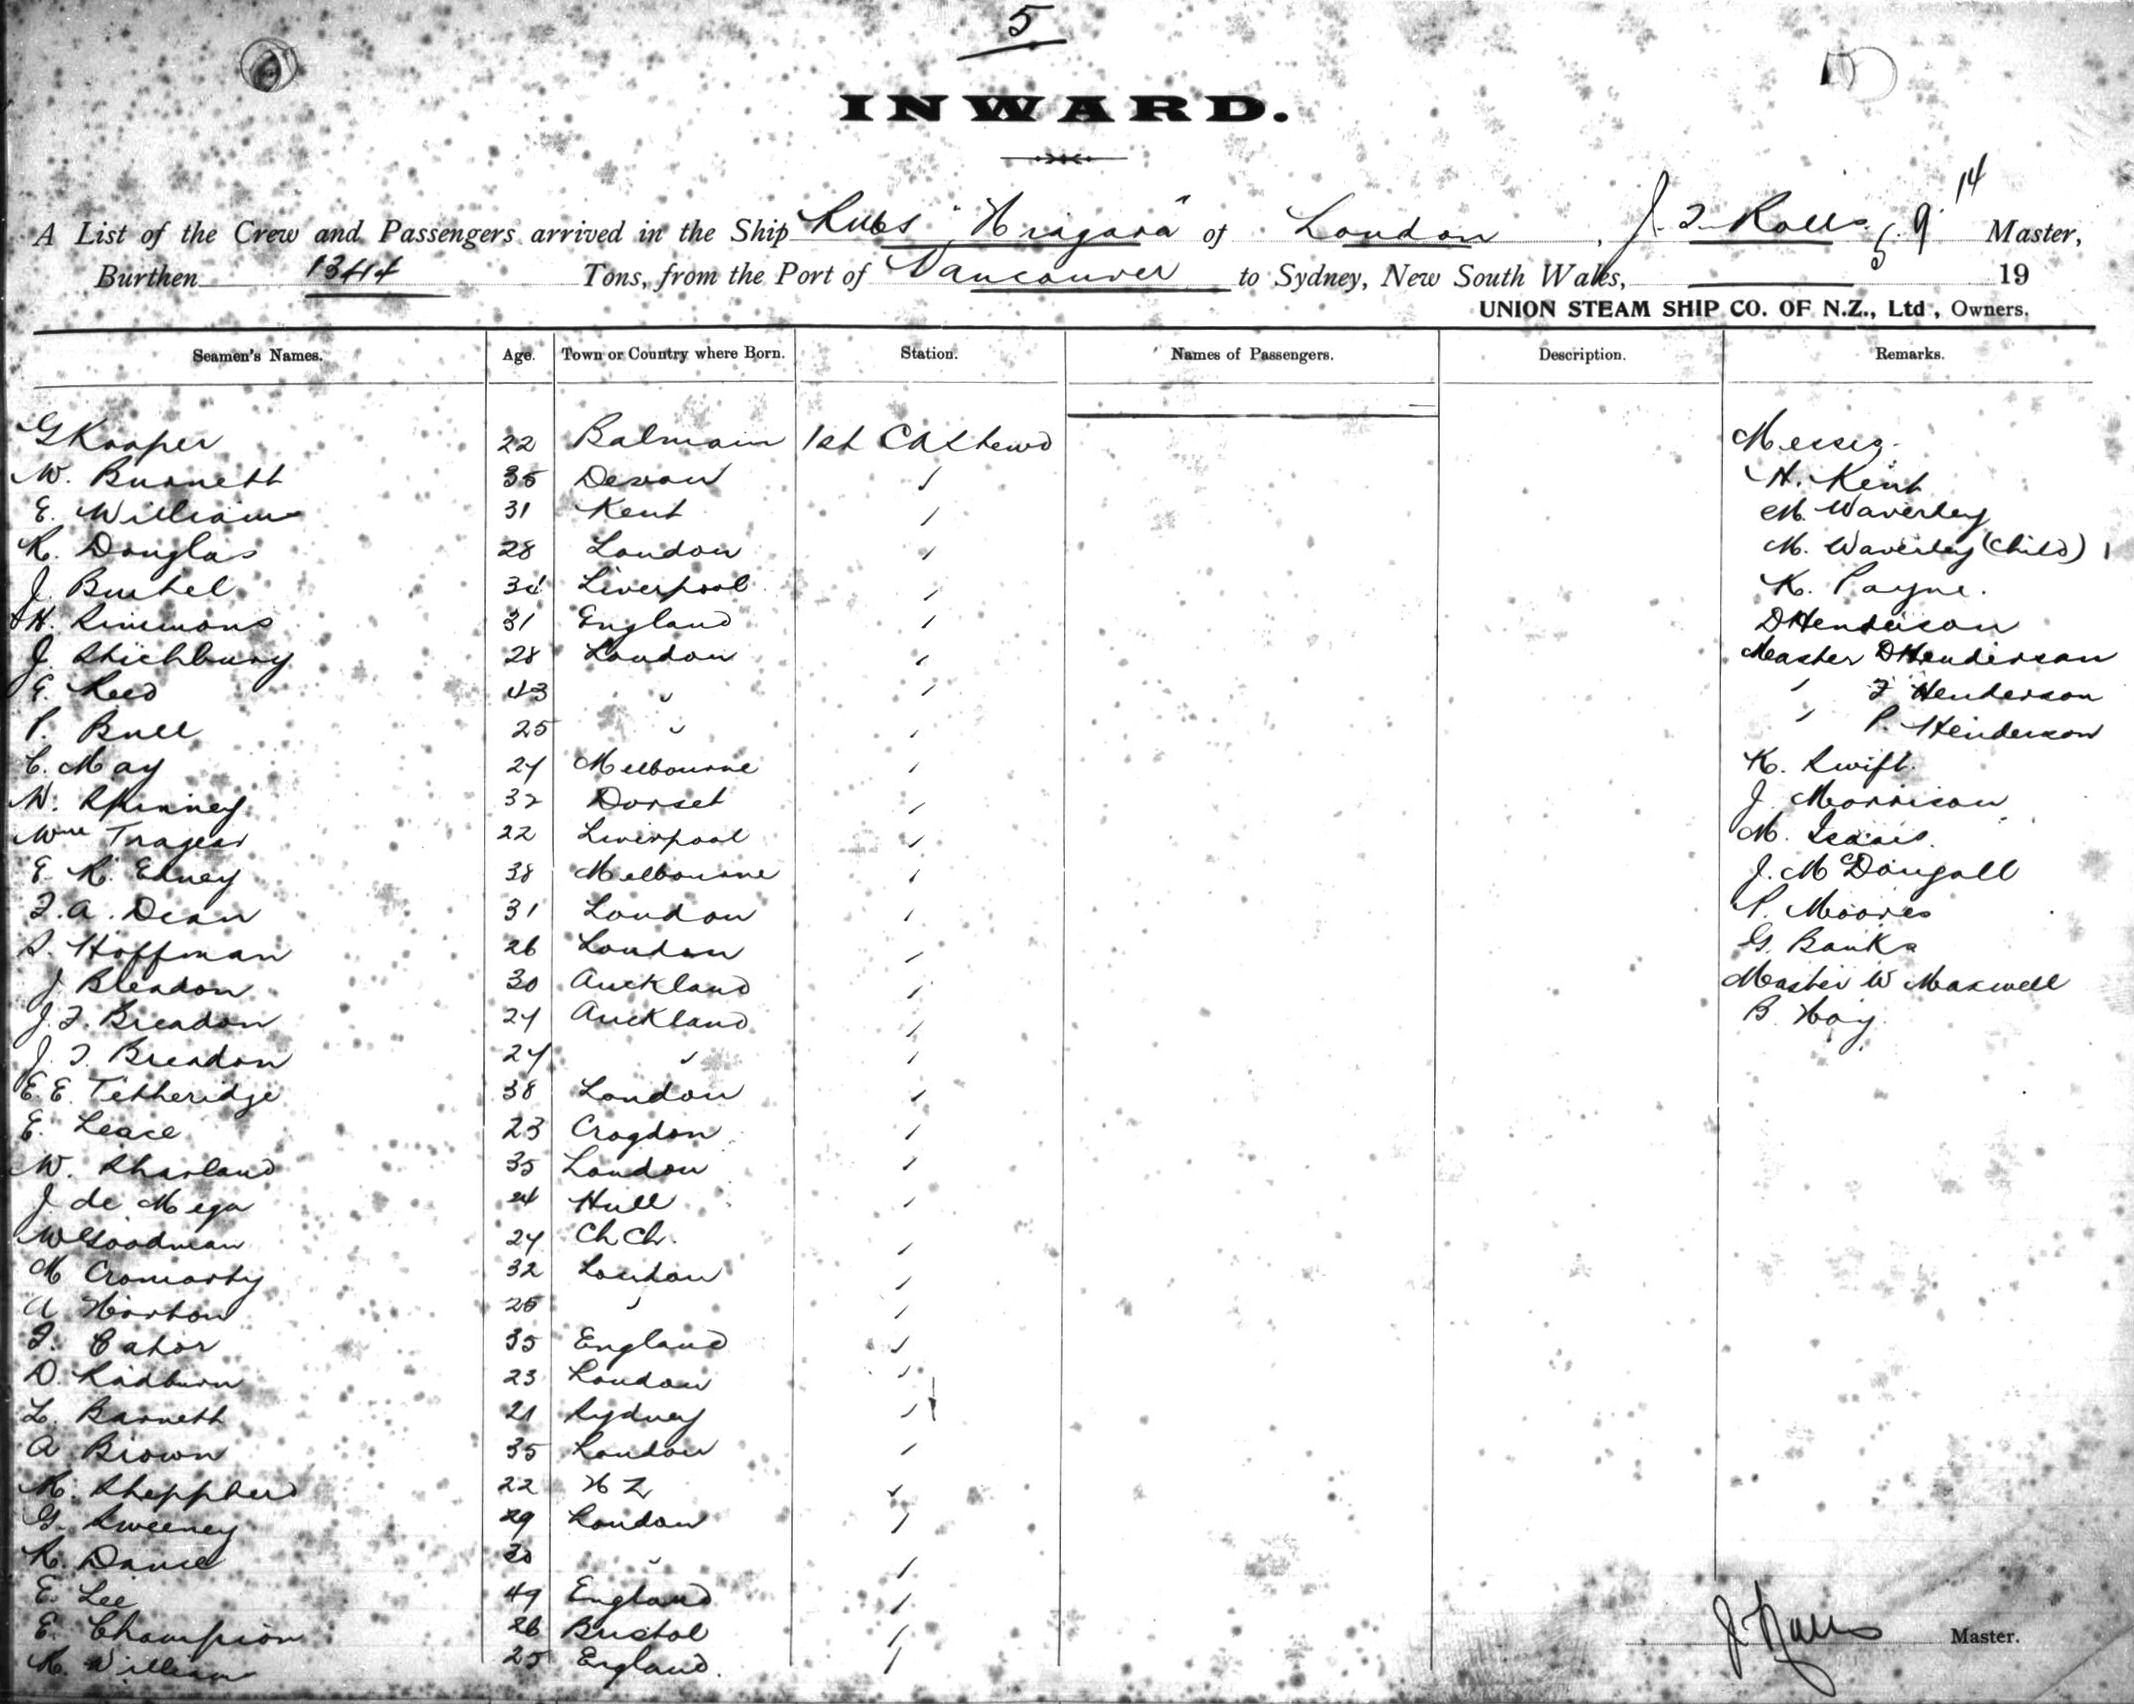 5
INWARD.
14
A List of the Crew and Passengers arrived in the Ship RMS "Niagara" of London, J. T. Rolls 5.9 Master,
Burthen 13414 Tons, from the Port of Vancouver to Sydney, New South Wales, 19
UNION STEAM SHIP CO. OF N.Z., Ltd, Owners.
Seamen's Names. Age. Town or Country where Born. Station. Names of Passengers. Description. Remarks.
G Kooper 22 Balmain 1st Cl Stewd Messrs.
W. Burnett 35 Devon " H. Kent
E. William 31 Kent " M. Waverley
R. Douglas 28 London " M. Waverley (Child) 1
J. Bushel 34 Liverpool " K. Payne.
H. Simmons 31 England " D Henderson
J Stichbury 28 London " Master D Henderson
E. Reed 43 " " " F Henderson
P. Bull 25 " " " P. Henderson
C. May 24 Melbourne " K. Swift.
W. Skinney 32 Dorset " J Morrison
Wm Tragear 22 Liverpool " M. Isaacs.
E. R. Edney 38 Melbourne " J. McDougall
F. A. Dean 31 London " P. Moores
S. Hoffman 26 London " G. Banks
J Breadon 30 Auckland " Master W Maxwell
J. F. Breadon 24 Auckland " B Hoy.
J. T. Breadon 24 " "
E. E. Tetheridge 38 London "
E. Leace 23 Croydon "
W. Sharland 35 London "
J de Meya 24 Hull "
W Goodman 24 Ch Ch. "
M Cromarty 32 London "
A Horton 25 " "
F. Cator 35 England "
D. Radburn 23 London "
L. Barnett 21 Sydney "
A Brown 35 London "
R. Shepperd 22 N Z "
G. Sweeney 29 London "
R. Dance 30 " "
E. Lee 49 England "
E. Champion 26 Bristol "
R. William 25 England. "
J. Rolls Master.